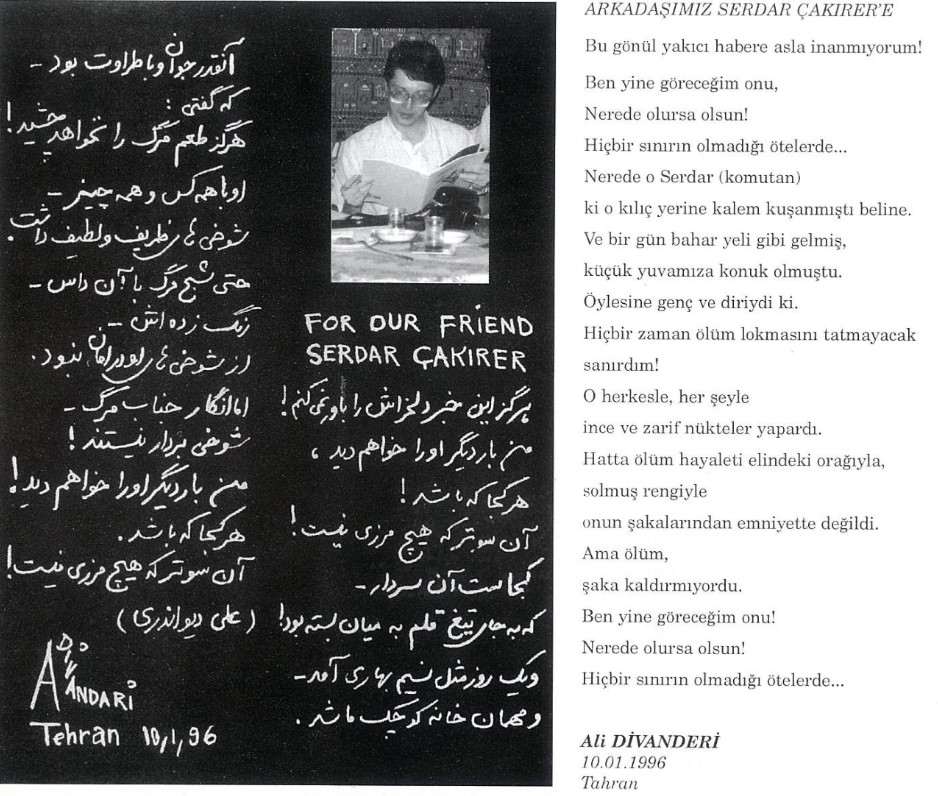 FOR OUR FRIEND
SERDAR ÇAKIRER
هرگز این خبر دلخراش را باور نمی‌کنم!
من بار دیگر او را خواهم دید ،
هر کجا که باشد!
آن سوتر که هیچ مرزی نیست!
کجاست آن سردار -
که به جای تیغ قلم به میان بسته بود!
و یک روز مثل نسیم بهاری آمد -
و مهمان خانه کوچک ما شد .
آنقدر جوان و با طراوت بود -
که گفتی :
هرگز طعم مرگ را نخواهد چشید!
او با همه کس و همه چیز -
شوخی های ظریف و لطیف داشت.
حتی شبح مرگ با آن داس -
زنگ زده اش -
از شوخی های او در امان نبود .
اما انگار جناب مرگ -
شوخی بردار نیستند !
من بار دیگر او را خواهم دید!
هر کجا که باشد .
آن سوتر که هیچ مرزی نیست!
( علی دیواندری )
A DiVANDARi
Tehran 10,1,96
ARKADAŞIMIZ SERDAR ÇAKIRER'E
Bu gönül yakıcı habere asla inanmıyorum!
Ben yine göreceğim onu,
Nerede olursa olsun!
Hiçbir sınırın olmadığı ötelerde...
Nerede o Serdar (komutan)
ki o kılıç yerine kalem kuşanmıştı beline.
Ve bir gün bahar yeli gibi gelmiş,
küçük yuvamıza konuk olmuştu.
Öylesine genç ve diriydi ki.
Hiçbir zaman ölüm lokmasını tatmayacak
sanırdım!
O herkesle, her şeyle
ince ve zarif nükteler yapardı.
Hatta ölüm hayaleti elindeki orağıyla,
solmuş rengiyle
onun şakalarından emniyette değildi.
Ama ölüm,
şaka kaldırmıyordu.
Ben yine göreceğim onu!
Nerede olursa olsun!
Hiçbir sınırın olmadığı ötelerde...
Ali DİVANDERİ
10.01.1996
Tahran